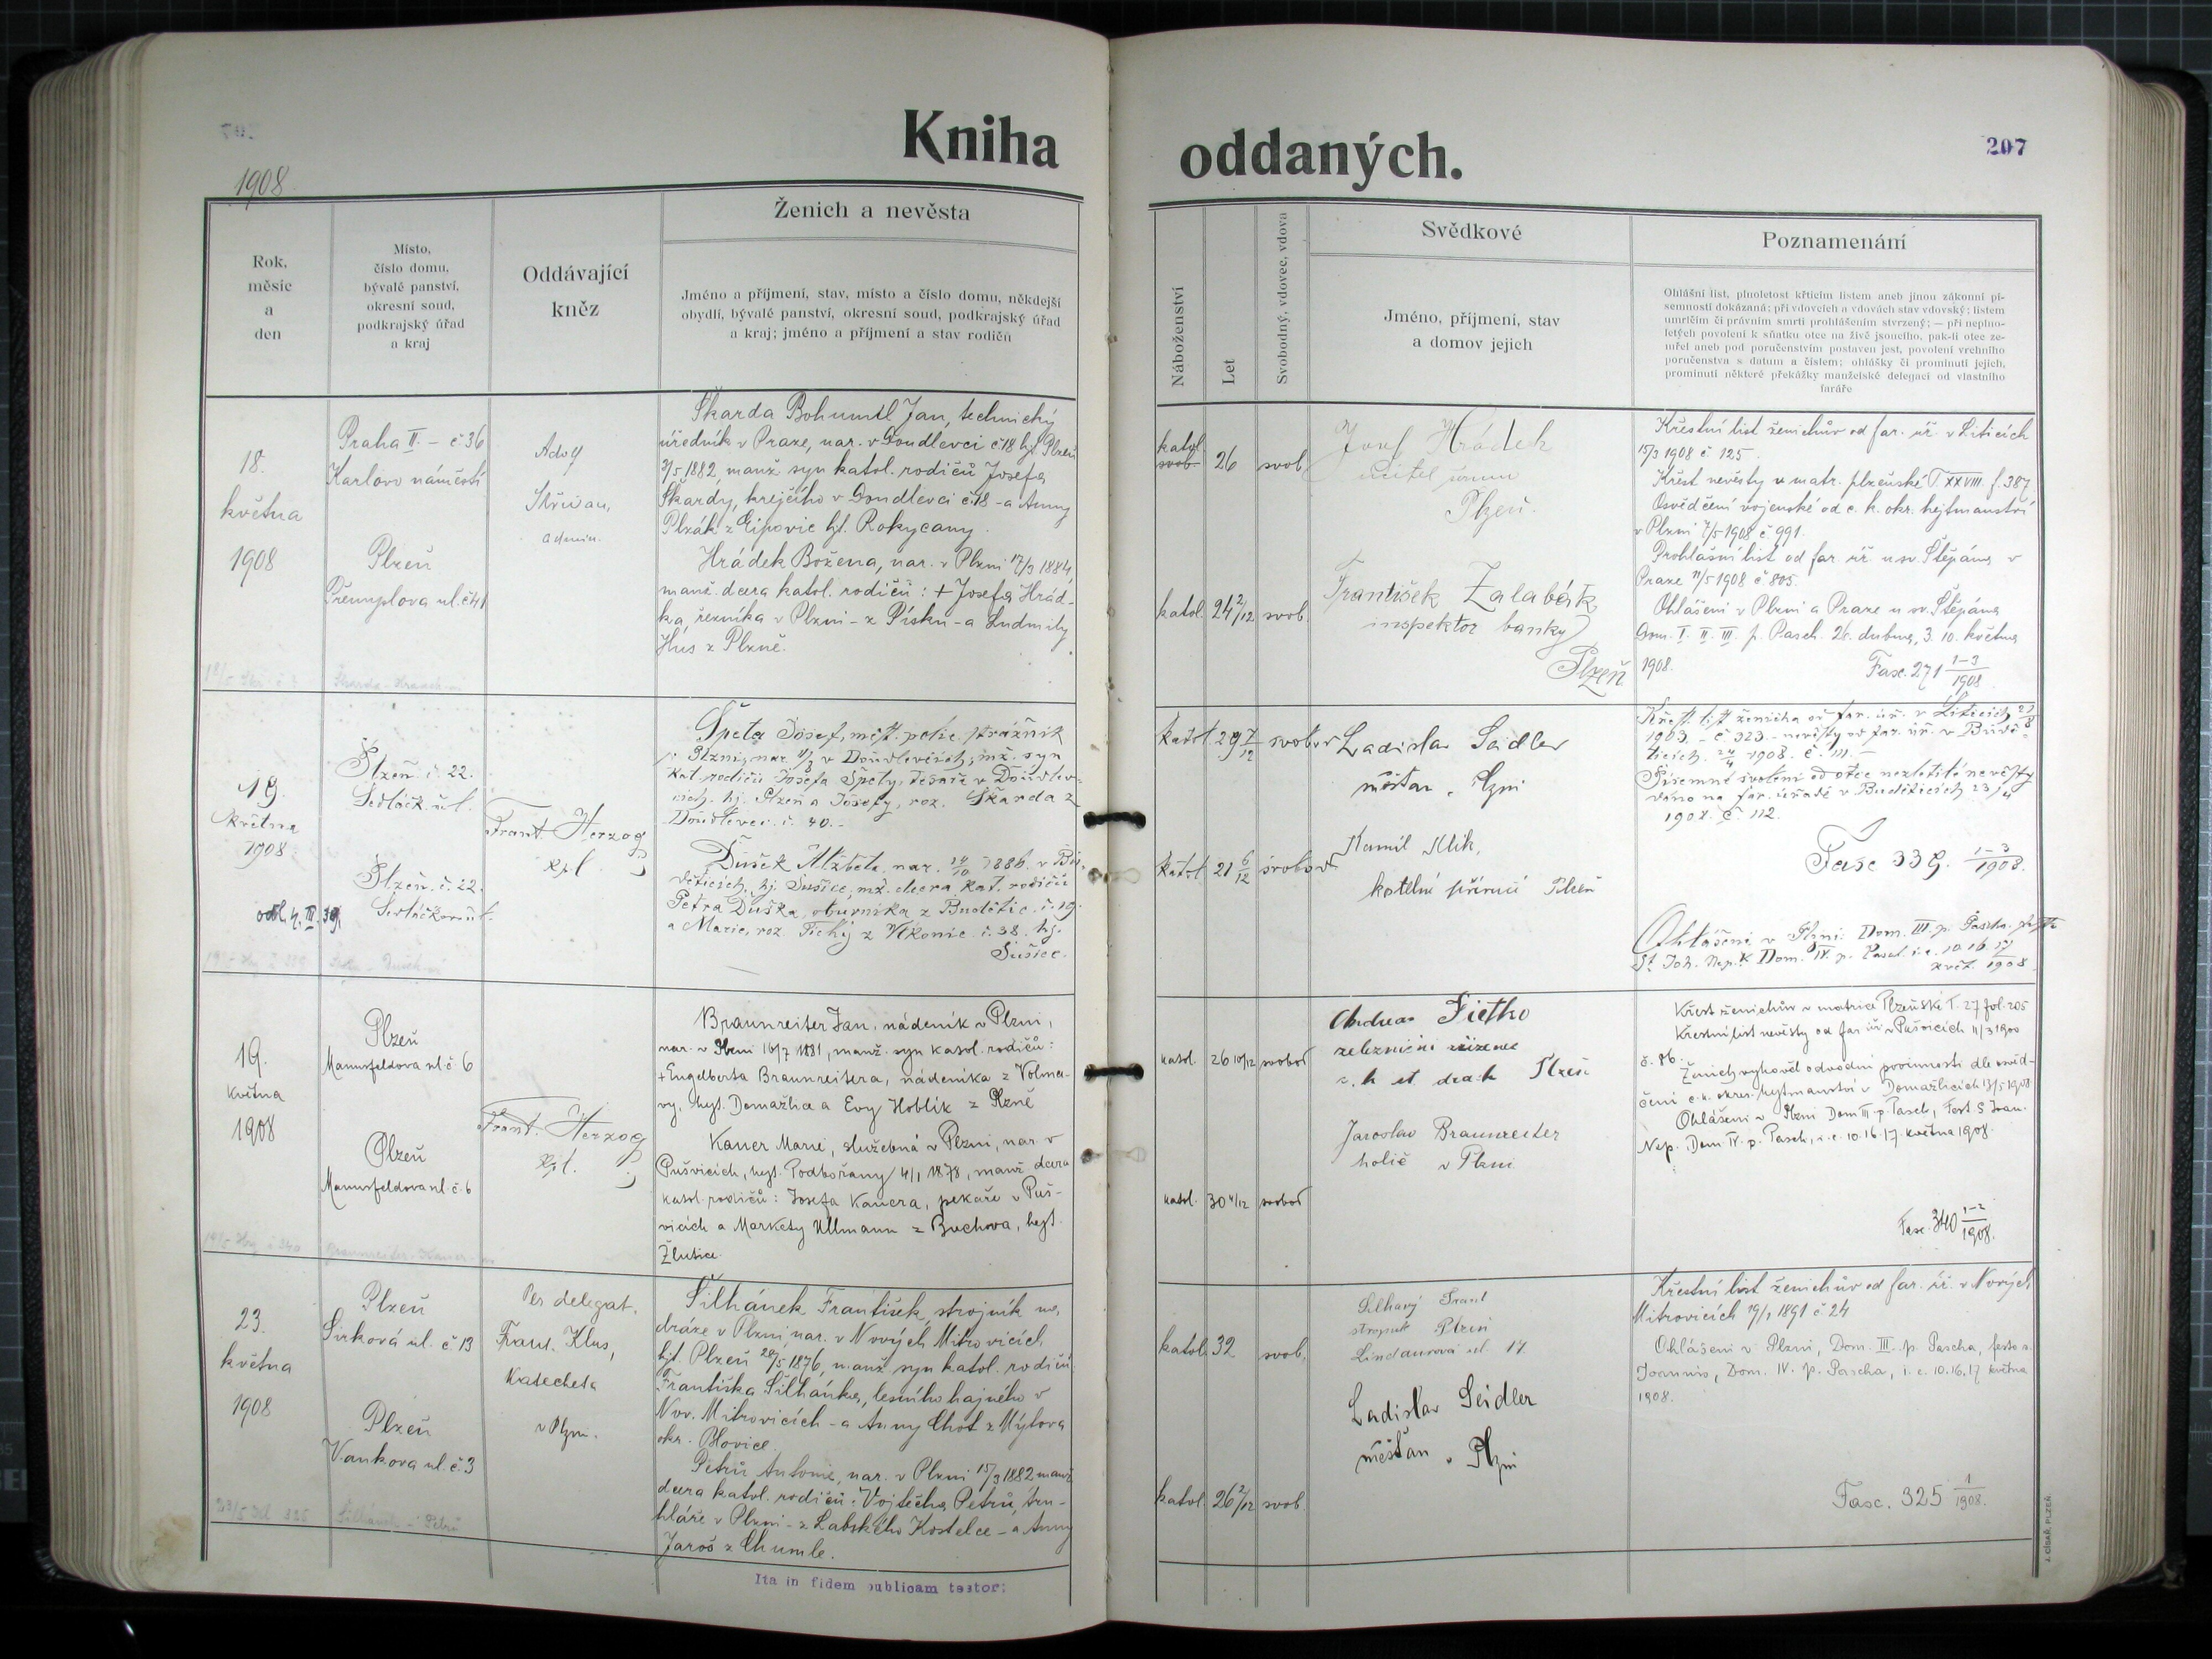 Kniha
oddaných.
207
1908
Rok,
měsíc
a
den
Místo,
číslo domu,
bývalé panství,
okresní soud,
podkrajský úřad
a kraj
Oddávající
kněz
Ženich a nevěsta
Jméno a příjmení, stav, místo a číslo domu, někdejší
obydlí, bývalé panství, okresní soud, podkrajský úřad
a kraj; jméno a příjmení a stav rodičů
Náboženství
Let
Svobodný, vdovec, vdova
Svědkové
Jméno, příjmení, stav
a domov jejich
Poznamenání
Ohlášní list, plnoletost křticím listem aneb jinou zákonní pí-
semností dokázaná; při vdovcích a vdovách stav vdovský; listem
umrlčím či právním smrti prohlášením stvrzený; — při neplno-
letých povolení k sňatku otce na živě jsoucího, pak-li otec ze-
mřel aneb pod poručenstvím postaven jest, povolení vrchního
poručenstva s datum a číslem; ohlášky či prominutí jejich,
prominutí některé překážky manželské delegací od vlastního
faráře
18.
května
1908
Praha II. – č 36
Karlovo náměstí
Plzeň
Přemyslova ul. č 41
Adolf
admin.
Škarda Bohumil Jan, technický
úředník v Praze, nar. v Doudlevci č.18 hjt. Plzeň
3/5 1882, manž. syn katol. rodičů Josefa
Škardy, krejčího v Doudlevci č.18 - a Anny
Plzák z Ejpovic hjt. Rokycany.
Hrádek Božena, nar. v Plzni 17/3 1884,
manž. dcera katol. rodičů: + Josefa Hrád-
ka, řezníka v Plzni - z Písku - a Ludmily
Hus z Plzně.
katol.
svob.
26
svob.
katol.
24 2/12
svob.
Josef Hrádek
učitel
Plzeň.
František Zalabák
inspektor banky
Plzeň
Křestní list ženichův od far. úř. v Liticích
15/3 1908 č. 125.
Křest nevěsty v matr. plzeňské T. XXVIII. f. 387
Osvědčení vojenské od c. k. okr. hejtmanství
v Plzni 7/5 1908 č 991.
Prohlášní list od far. úř. u sv. Štěpána v
Praze 11/5 1908 č 805.
Ohlášeni v Plzni a Praze u sv. Štěpána
Dom. I. II. III. p. Pasch. 26. dubna, 3. 10. května
1908.
Fasc. 271 1–3/1908
19.
května
1908
Plzeň č. 22.
Sedláčk. ul.
Plzeň. č. 22.
Sedláčkova ul.
odl. 4. III. 39.
Frant. Herzog
kpl.
Špeta Josef, měst. polic. strážník
v Plzni, nar. v Doudlevcích, mž. syn
kat. rodičů Josefa Špety, tesaře v Doudlev-
cích, hj. Plzeň a Josefy, roz. Škarda z
Doudlevec č. 40.-
Dušek Alžběta, nar. 14/10 1886 v Bu-
děticích, hj. Sušice, mž. dcera kat. rodičů
Petra Duška, obuvníka z Budětic č. 19.
a Marie, roz. Tichý z Vlkonic č. 38. hj.
Sušice.
katol.
29 7/12
svobod
katol
21 6/12
svobod
Ladislav Seidler
měšťan v Plzni
Kamil Klik,
Plzeň
Křest. list ženicha od far. úř. v Liticích
1903. – č 323. – nevěsty od far. úř. v Budě-
ticích. 24/4 1908. č. 111. –
Písemné svolení od otce nezletilé nevěsty
dáno na far. úřadě v Buděticích 23/4
1908. č. 112.
Fasc 339. 1–3/1908.
Ohlášeni v Plzni: Dom. III. p. Pascha.
St. Joh. Nep. & Dom. IV. p. Pasch. i. e. 10. 16. 17
květ. 1908
19.
května
1908
Plzeň
Mannsfeldova ul č 6
Plzeň
Mannsfeldova ul. č. 6
Frant. Herzog
kpl.
Braunreiter Jan, nádeník v Plzni,
nar. v Plzni 16/7 1881, manž. syn katol. rodičů:
+ Engelberta Braunreitera, nádeníka z Volma-
vy, hejt. Domažlice a Evy Hoblík z Plzně
Kauer Marie, služebná v Plzni, nar. v
Pušvicích, hejt. Podbořany 4/1 1878, manž. dcera
katol. rodičů: Josefa Kauera, pekaře v Puš-
vicích a Markety Ullmann z Buchova, hejt.
Žlutice.
katol.
26 10/12
svobod
katol.
30 4/12
svobod
Andreas
železniční zřízenec
c. k. st. drah Plzeň
Jaroslav Braunreiter
holič v Plzni
Křest ženichův v matrice Plzeňské T. 27 fol. 205
Křestní list nevěsty od far úř v Pušvicích 11/3 1900
č. 86.
Ženich vyhověl odvodní povinnosti dle osvěd-
čení c. k. okres. hejtmanství v Domažlicích 13/5 1908
Ohlášeni v Plzni Dom III. p. Pasch, Fest. S Joan.
Nep. Dom IV. p. Pasch, i. e. 10. 16. 17. května 1908.
Fasc. 340 1–2/1908.
23.
května
1908
Plzeň
Sirková ul. č 13
Plzeň
Vaňkova ul. č. 3
Per delegat.
Frant. Klus,
Katecheta
v Plzni.
Šilhánek František, strojník na
dráze v Plzni, nar. v Nových Mitrovicích,
hjt. Plzeň 28/5 1876, manž. syn katol. rodičů
Františka Šilhánka, lesního hajného v
Nov. Mitrovicích - a Anny Chot z Mýtova
okr. Blovice.
Petrů Antonie, nar. v Plzni 15/3 1882 manž.
dcera katol. rodičů: Vojtěcha Petrů, tru-
hláře v Plzni - z Labského Kostelce - a Anny
Jaroš z Chumle.
katol.
32
svob.
katol.
26 2/12
svob.
Silhavý Frant
strojník Plzeň
Lindaurova ul. 17
Ladislav Seidler
měšťan v Plzni
Křestní list ženichův od far. úř. v Nových
Mitrovicích 19/1 1891 č 24
Ohlášeni v Plzni, Dom. III. p. Pascha, festo s.
Joannis, Dom. IV. p. Pascha, i. e. 10. 16. 17 května
1908.
Fasc. 325 1/1908.
Ita in fidem publicam testor:
J. CÍSAŘ, PLZEŇ.